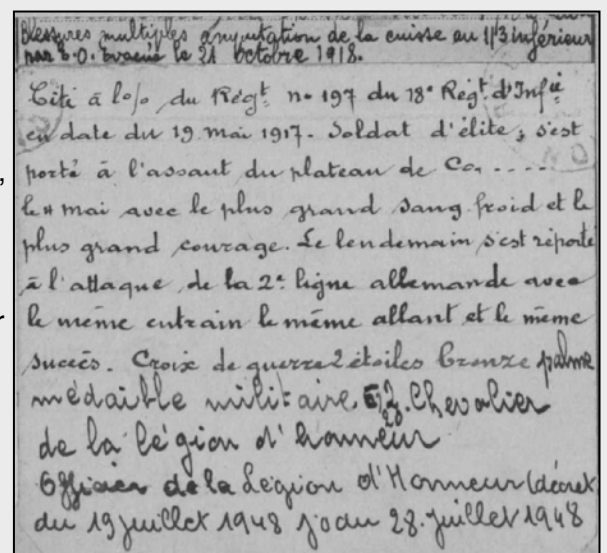 Blessures multiples amputation de la cuisse au 1/3 inférieur
par E.O. Evacué le 21 octobre 1918.
Cité à l'o/o du Régt no 197 du 18e Régt d'Infie
en date du 19 mai 1917. Soldat d'élite, s'est
porté à l'assaut du plateau de Ca. ....
le 4 mai avec le plus grand sang froid et le
plus grand courage. Le lendemain s'est réporté
à l'attaque de la 2e ligne allemande avec
le même entrain le même allant et le même
succès. Croix de guerre 2 étoiles bronze palme
médaille militaire Chevalier
de la légion d'honneur
Officier de la Légion d'Honneur (décret
du 19 juillet 1948 jo du 28 juillet 1948